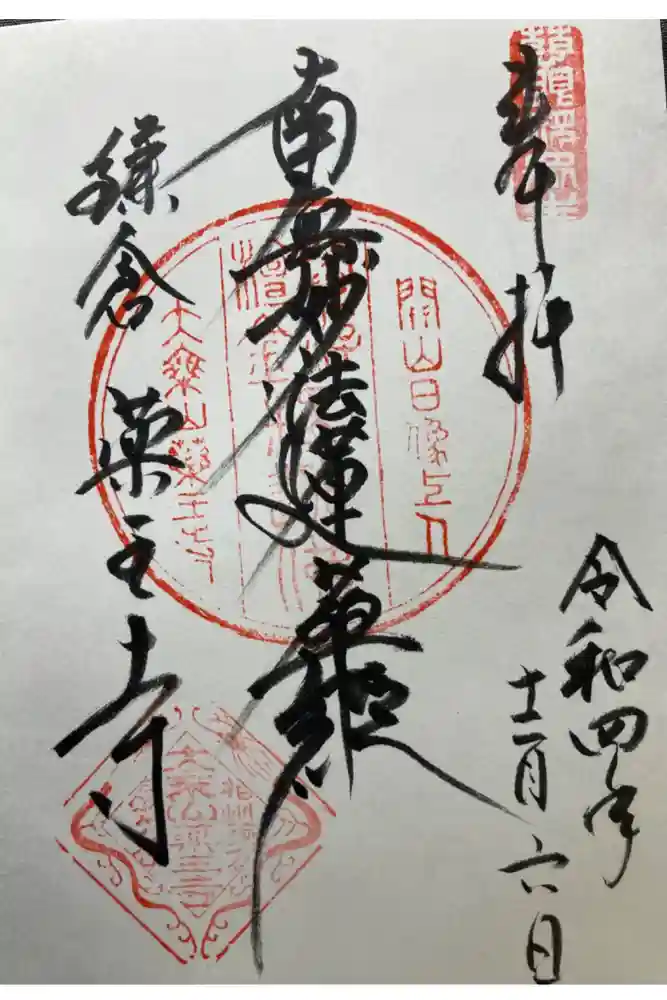 奉拝
令和四年
十二月六日
南無妙法蓮華経
鎌倉
薬王寺
開山日像上人
大乗山薬王寺